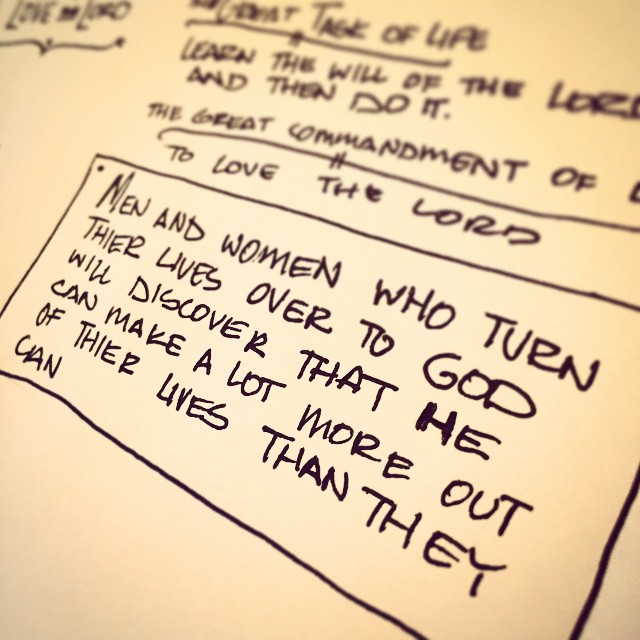 LOVE THE LORD
THE GREAT TASK OF LIFE
LEARN THE WILL OF THE LORD
AND THEN DO IT.
THE GREAT COMMANDMENT OF
TO LOVE THE LORD
• MEN AND WOMEN WHO TURN
THIER LIVES OVER TO GOD
WILL DISCOVER THAT HE
CAN MAKE A LOT MORE OUT
OF THIER LIVES THAN THEY
CAN